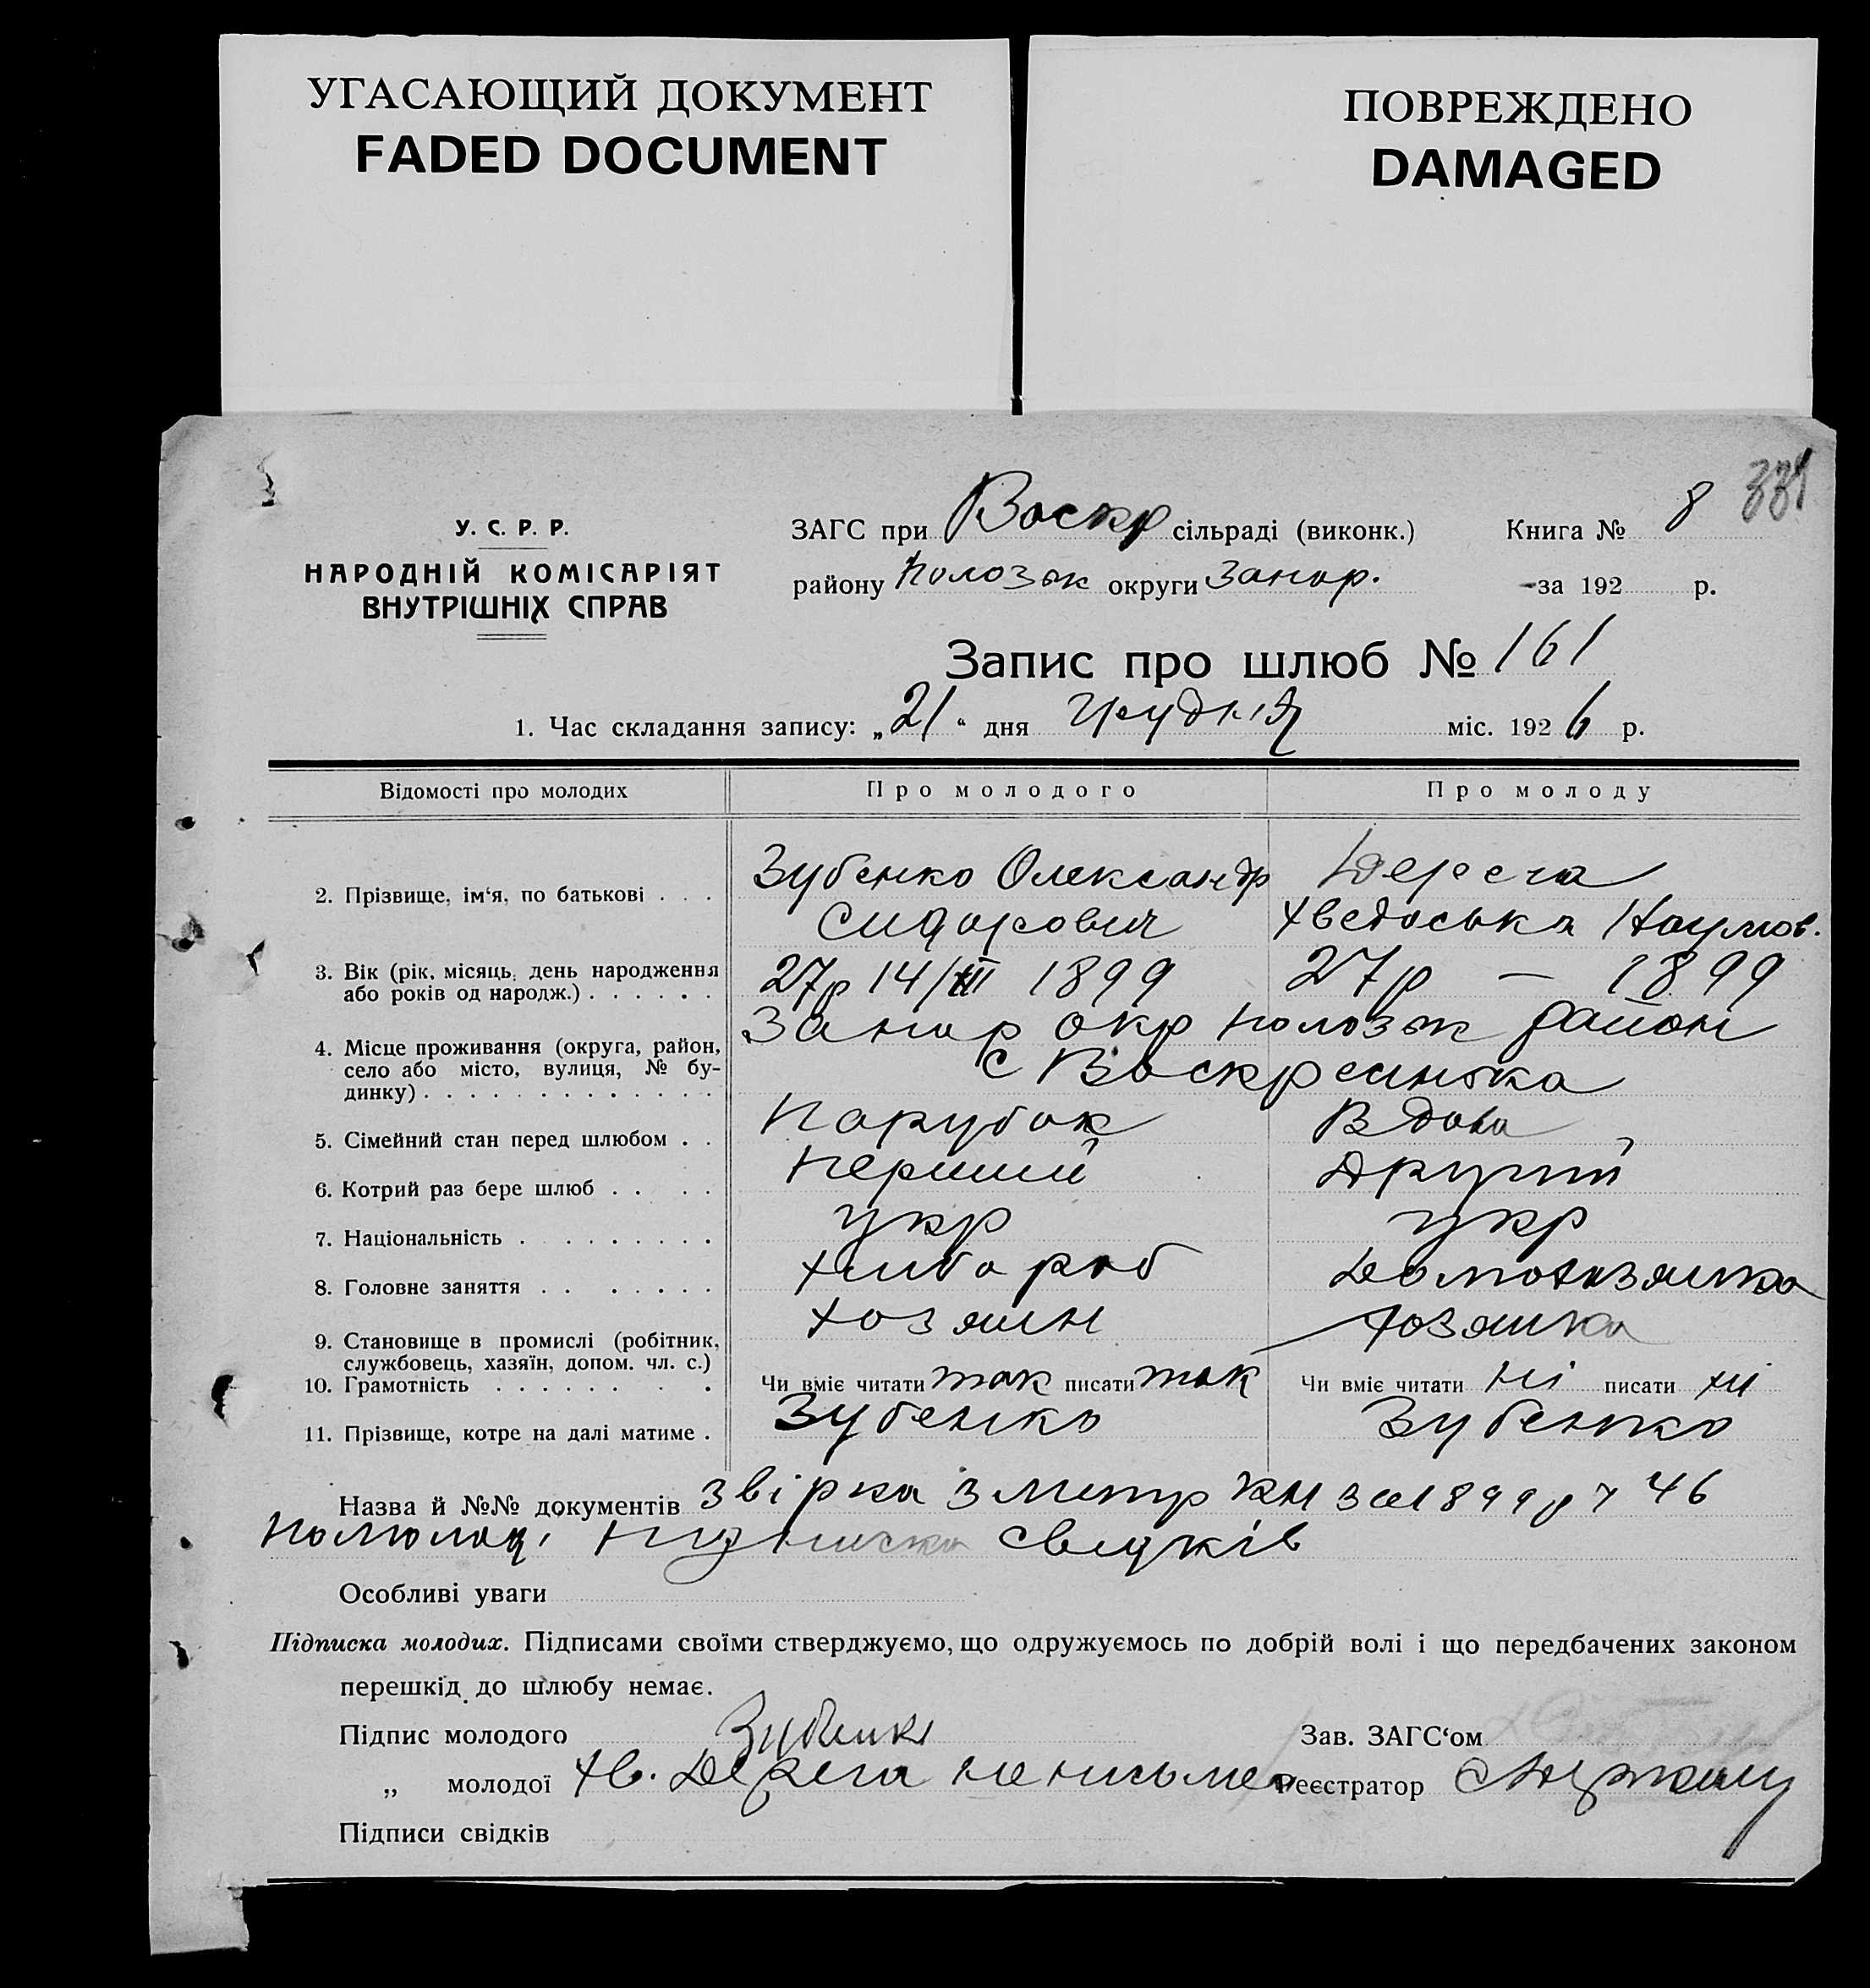 УГАСАЮЩИЙ ДОКУМЕНТ
FADED DOCUMENT
ПОВРЕЖДЕНО
DAMAGED
331
У. С. Р. Р.
НАРОДНІЙ КОМІСАРІЯТ
ВНУТРІШНІХ СПРАВ
ЗАГС при Воскр сільраді (виконк.) Книга № 8
району Полозьк округи Запор. за 192 р.
Запис про шлюб № 161
1. Час складання запису: „21“ дня Грудня міс. 1926 р.
Відомості про молодих Про молодого Про молоду
2. Прізвище, ім‘я, по батькові . . . Зубенко Олександр Дереча
Сидорович Хведоська Наумов.
3. Вік (рік, місяць, день народження
або років од народж.) . . . . . . 27р 14/III 1899 27р — 1899
4. Місце проживання (округа, район,
село або місто, вулиця, № бу-
динку) . . . . . . . . . . . . .
Запор окр Полозьк район
с Воскресинка
5. Сімейний стан перед шлюбом . . Парубок Вдова
6. Котрий раз бере шлюб . . . . Перший Другий
7. Національність . . . . . . . . . укр укр
8. Головне заняття . . . . . . . . Хлібороб Домохозяйка
9. Становище в промислі (робітник,
службовець, хазяїн, допом. чл. с.) хозяин хозяйка
10. Грамотність . . . . . . . . Чи вміє читати так писати так Чи вміє читати ні писати ні
11. Прізвище, котре на далі матиме . Зубенко Зубенко
Назва й №№ документів звірка з метр кн за 1899 р ч 46
По молоді підписка свидків
Особливі уваги
Підписка молодих. Підписами своїми стверджуємо, що одружуємось по добрій волі і що передбачених законом
перешкід до шлюбу немає.
Підпис молодого Зубенко Зав. ЗАГС‘ом
„ молодої Хв. Дереча неписьмен Реєстратор
Підписи свідків